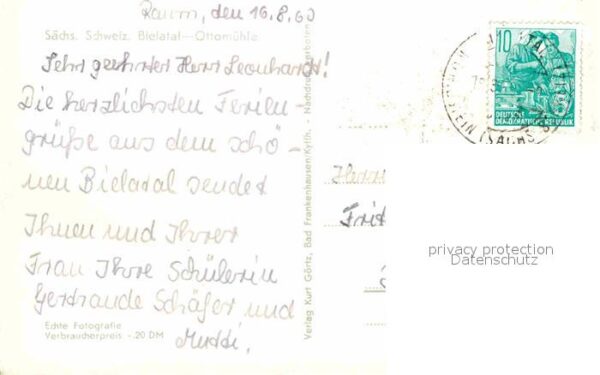 Raum, den 16.8.60
Sächs. Schweiz. Bielatal—Ottomühle
Sehr geehrter Herr Leonhardt!
Die herzlichsten Ferien-
grüße aus dem schö-
nen Bielatal sendet
Ihnen und Ihrer
Frau Ihre Schülerin
Gertraude Schäfer und
Mutti.
Echte Fotografie
Verbraucherpreis -.20 DM
Verlag Kurt Görtz, Bad Frankenhausen/Kyffh.
Nachdruck verboten
Herrn
Frit
10
DEUTSCHE
DEMOKRATISCHE REPUBLIK
STEIN (SÄCHS
privacy protection
Datenschutz